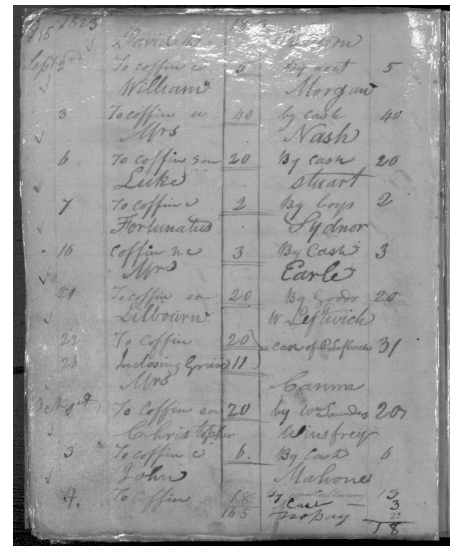 1823
David
Sept 2nd To coffin c 5 By acct 5
William Morgan
3 To coffin w 40 by Cash 40
Mrs Nash
6 To coffin son 20 By Cash 20
Luke Stuart
7 To coffin c 2 By boys 2
Fortunatus Sydnor
16 Coffin ne 3 By Cash 3
Mrs Earle
21 To coffin son 20 By Goods 20
Lilbourn W Leftwich
22 To Coffin 20 Cash of 31
23 Inclosing Grave 11
Mrs
To Coffin son 20 by Wm 20
Christopher Winsfrey
3 To coffin c 6 By Cash 6
John Mahone
4 To Coffin 18 By 13
165 Cash 3
pay 2
18